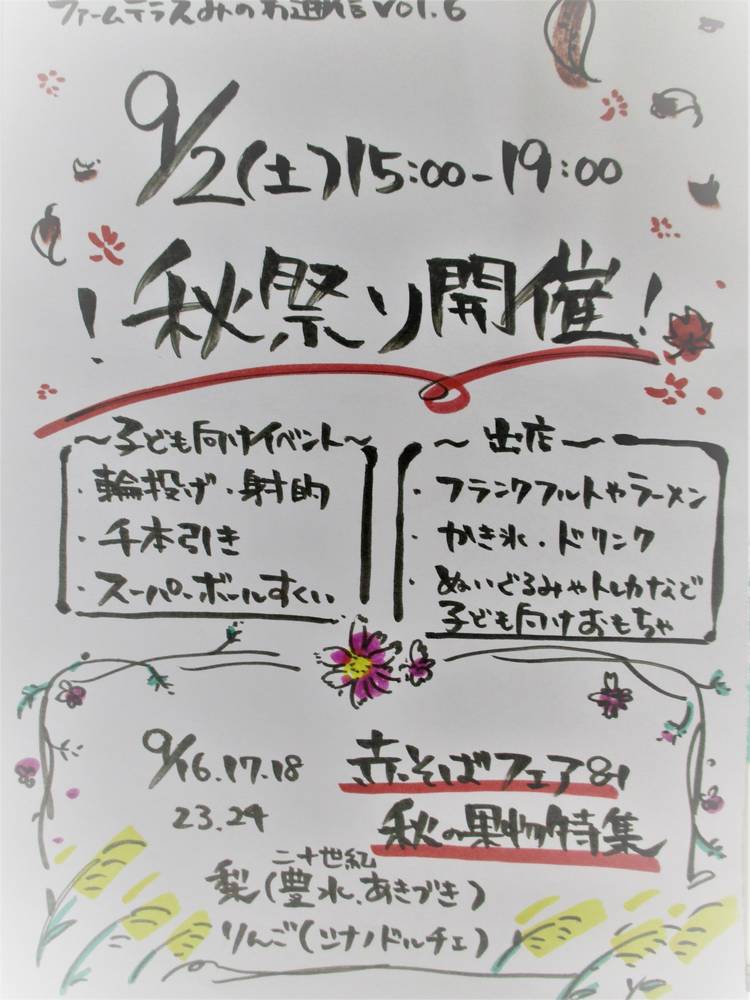 ファームテラスみのわ通信 vol.6
9/2(土)15:00-19:00
!秋祭り開催!
～子ども向けイベント～
・輪投げ・射的
・千本引き
・スーパーボールすくい
～出店～
・フランクフルトやラーメン
・かき氷・ドリンク
・ぬいぐるみやトレカなど
子ども向けおもちゃ
9/16.17.18
23.24
赤そばフェア&
秋の果物特集
二十世紀
梨(豊水、あきづき)
りんご(シナノドルチェ)